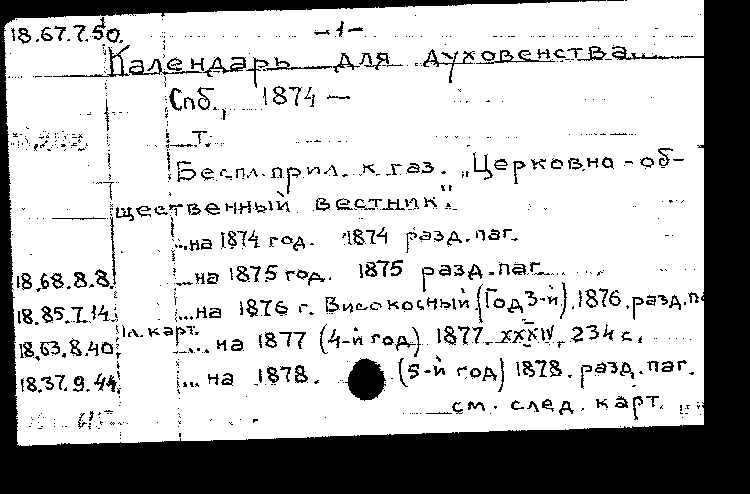 18.67.7.50. -1-
Календарь для духовенства...
Спб., 1874 —
т.
Беспл. прил. к газ. „Церковно-об-
щественный вестник".
...на 1874 год. 1874 разд. паг.
18.68.8.8. ...на 1875 год. 1875 разд. паг.
18.85.7.14. ...на 1876 г. Високосный (Год 3-й). 1876. разд. па
18.63.8.40. 1л. карт. ... на 1877 (4-й год) 1877. XXXIV, 234 с.
18.37.9.44. ... на 1878. (5-й год) 1878. разд. паг.
см. след. карт.